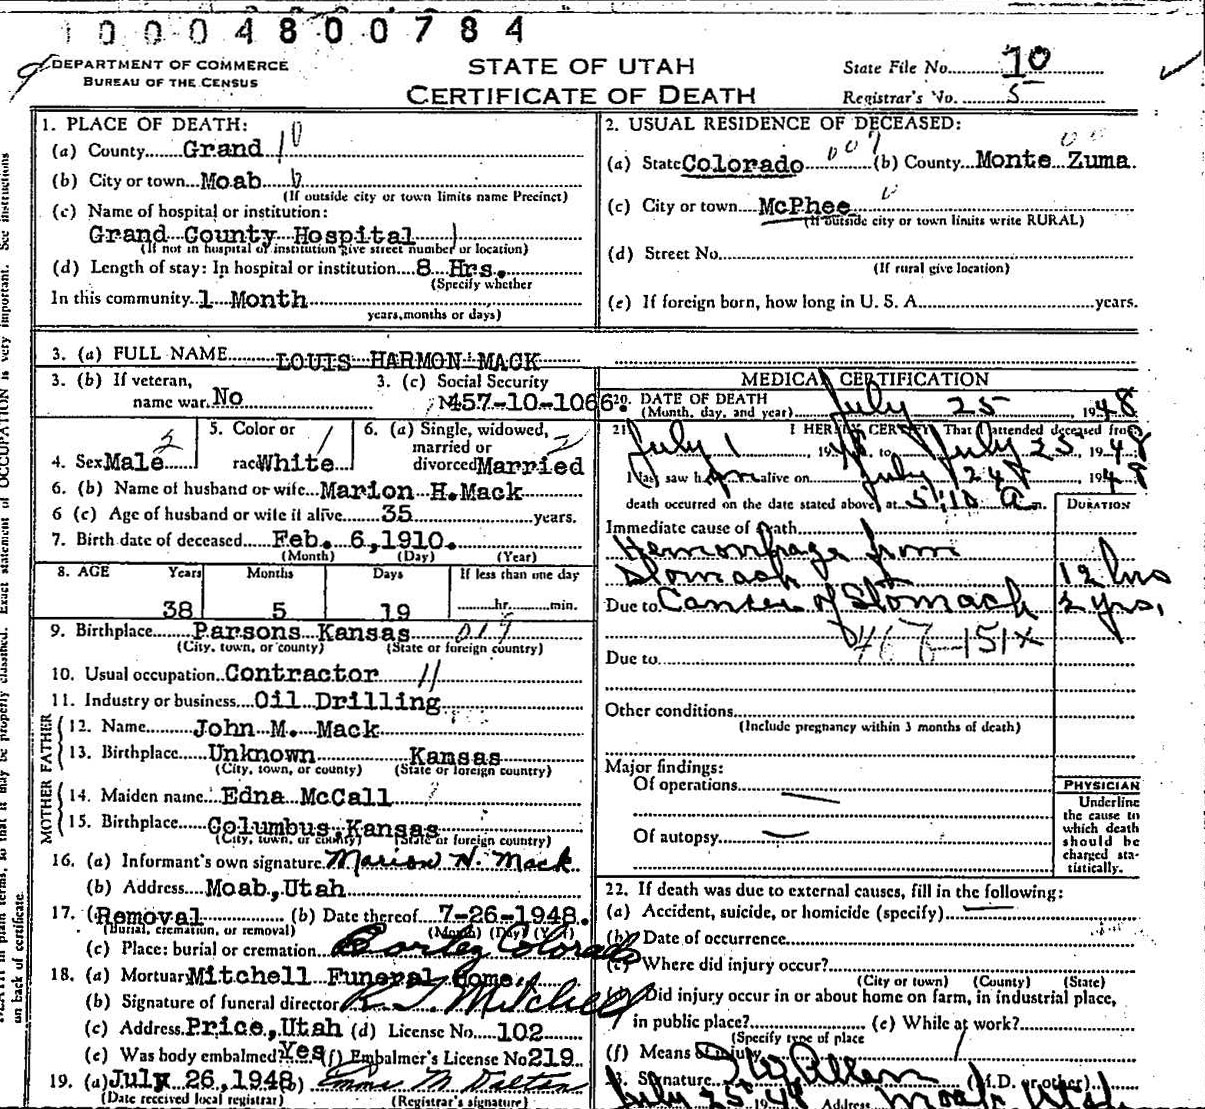 1 0 0 0 4 8 0 0 7 8 4
DEPARTMENT OF COMMERCE
BUREAU OF THE CENSUS
STATE OF UTAH
CERTIFICATE OF DEATH
State File No. 70
Registrar's No. 5
1. PLACE OF DEATH:
(a) County Grand
(b) City or town Moab
(If outside city or town limits name Precinct)
(c) Name of hospital or institution:
Grand County Hospital
(If not in hospital or institution give street number or location)
(d) Length of stay: In hospital or institution 8 Hrs.
(Specify whether
In this community 1 Month
years, months or days)
2. USUAL RESIDENCE OF DECEASED:
(a) State Colorado (b) County Monte Zuma
(c) City or town McPhee
(If outside city or town limits write RURAL)
(d) Street No.
(If rural give location)
(e) If foreign born, how long in U. S. A. years.
3. (a) FULL NAME LOUIS HARMON MACK
3. (b) If veteran,
name war. No
3. (c) Social Security
No 457-10-1066.
4. Sex Male
5. Color or
race White
6. (a) Single, widowed,
married or
divorced Married
6. (b) Name of husband or wife Marion H. Mack
6 (c) Age of husband or wife if alive 35 years.
7. Birth date of deceased Feb. 6, 1910.
(Month) (Day) (Year)
8. AGE Years Months Days If less than one day
38 5 19 hr. min.
9. Birthplace Parsons Kansas 017
(City, town, or county) (State or foreign country)
10. Usual occupation Contractor 11
11. Industry or business Oil Drilling
FATHER
12. Name John M. Mack
13. Birthplace Unknown Kansas
(City, town, or county) (State or foreign country)
MOTHER
14. Maiden name Edna McCall
15. Birthplace Columbus, Kansas
(City, town, or county) (State or foreign country)
16. (a) Informant's own signature Marion H. Mack
(b) Address Moab, Utah
17. (Removal (b) Date thereof 7-26-1948.
(Burial, cremation, or removal) (Month) (Day) (Year)
(c) Place: burial or cremation Cortez Colorado
18. (a) Mortuary Mitchell Funeral Home.
(b) Signature of funeral director Mitchell
(c) Address Price, Utah (d) License No. 102
(e) Was body embalmed? Yes (f) Embalmer's License No 219
19. (a) July 26, 1948 (b) Emma M Dalton
(Date received local registrar) (Registrar's signature)
MEDICAL CERTIFICATION
20. DATE OF DEATH
(Month, day, and year) July 25, 1948
21. I HEREBY CERTIFY That I attended deceased from
July 1, 1948, to July 25, 1948
I last saw him alive on July 24, 1948
death occurred on the date stated above at 5:10 a m.
DURATION
Immediate cause of death
Hemorrhage from
Stomach 12 hrs
Due to Cancer of Stomach 2 yrs.
151x
Due to
Other conditions
(Include pregnancy within 3 months of death)
Major findings:
Of operations
Of autopsy
PHYSICIAN
Underline
the cause to
which death
should be
charged sta-
tistically.
22. If death was due to external causes, fill in the following:
(a) Accident, suicide, or homicide (specify)
(b) Date of occurrence
(c) Where did injury occur?
(City or town) (County) (State)
(d) Did injury occur in or about home on farm, in industrial place,
in public place? (e) While at work?
(Specify type of place
(f) Means of injury
23. Signature Allen (M.D. or other)
July 25 1948 Address Moab, Utah